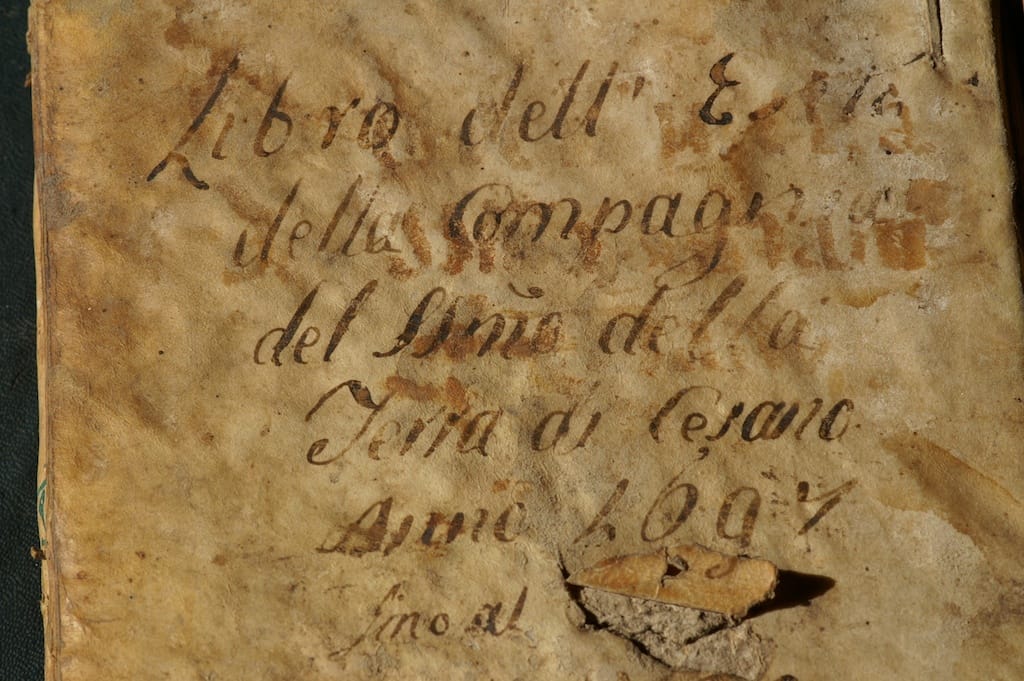 Libro dell'
della Compagnia
del SSm̃o della
Terra di Cesano
Anno 1697
sino al